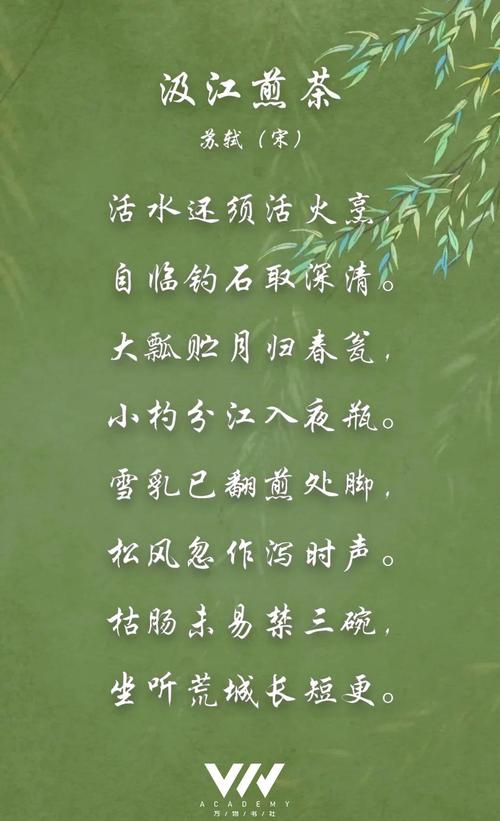 汲江煎茶
苏轼（宋）
活水还须活火烹
自临钓石取深清。
大瓢贮月归春瓮，
小杓分江入夜瓶。
雪乳已翻煎处脚，
松风忽作泻时声。
枯肠未易禁三碗，
坐听荒城长短更。
VIN
ACADEMY
万物书社